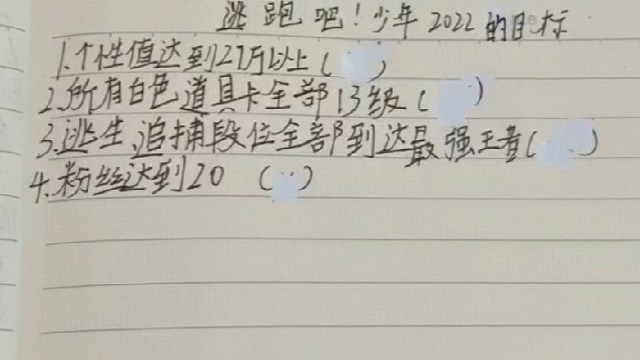 逃跑吧！少年2022的目标
1.个性值达到27万以上（ ）
2.所有白色道具卡全部13级（ ）
3.逃生、追捕段位全部到达最强王者（ ）
4.粉丝达到20 （ ）